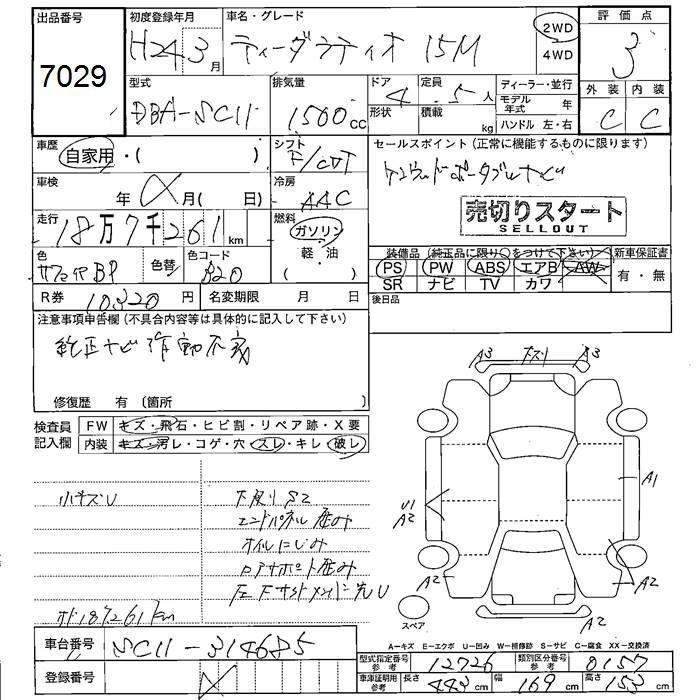 出品番号
7029
初度登録年月
H24 3月
車名・グレード
ティーダラティオ 15M
2WD
4WD
評価点
3
外装 内装
C C
型式
DBA-SC11
排気量
1500cc
ドア
4
形状
定員
5人
積載
kg
ディーラー・並行
モデル年式 年
ハンドル 左・右
車歴
自家用・( )
シフト
F/CVT
セールスポイント(正常に機能するものに限ります)
ケンウッドポータブルナビ
売切りスタート
SELLOUT
車検
年 月( 日)
冷房
AAC
走行
18万7千261km
燃料
ガソリン
軽・油
( )
色
BP
色替
色コード
320
R券
10320円
名変期限 月 日
装備品(純正品に限り○をつけて下さい)
PS PW ABS エアB AW
SR ナビ TV カワ
新車保証書
有・無
後日品
注意事項申告欄(不具合内容等は具体的に記入して下さい)
純正ナビ作動不良
修復歴 有〔箇所 〕
検査員
記入欄
FW キズ・飛石・ヒビ割・リペア跡・X要
内装 キズ・汚レ・コゲ・穴・スレ・キレ・破レ
小キズU
下廻りS2
エンドパネル歪み
オイルにじみ
歪み
左下サイドメンバー先U
187261km
A3 A3
A1
U1
A2
A2
A2
A2
スペア
A-キズ E-エクボ U-凹み W-補修跡 S-サビ C-腐食 XX-交換済
車台番号
SC11-314685
登録番号
型式指定番号
参考
12726
類別区分番号
参考
0157
車庫証明用
参考
長さ 443cm
幅 169cm
高さ 153cm